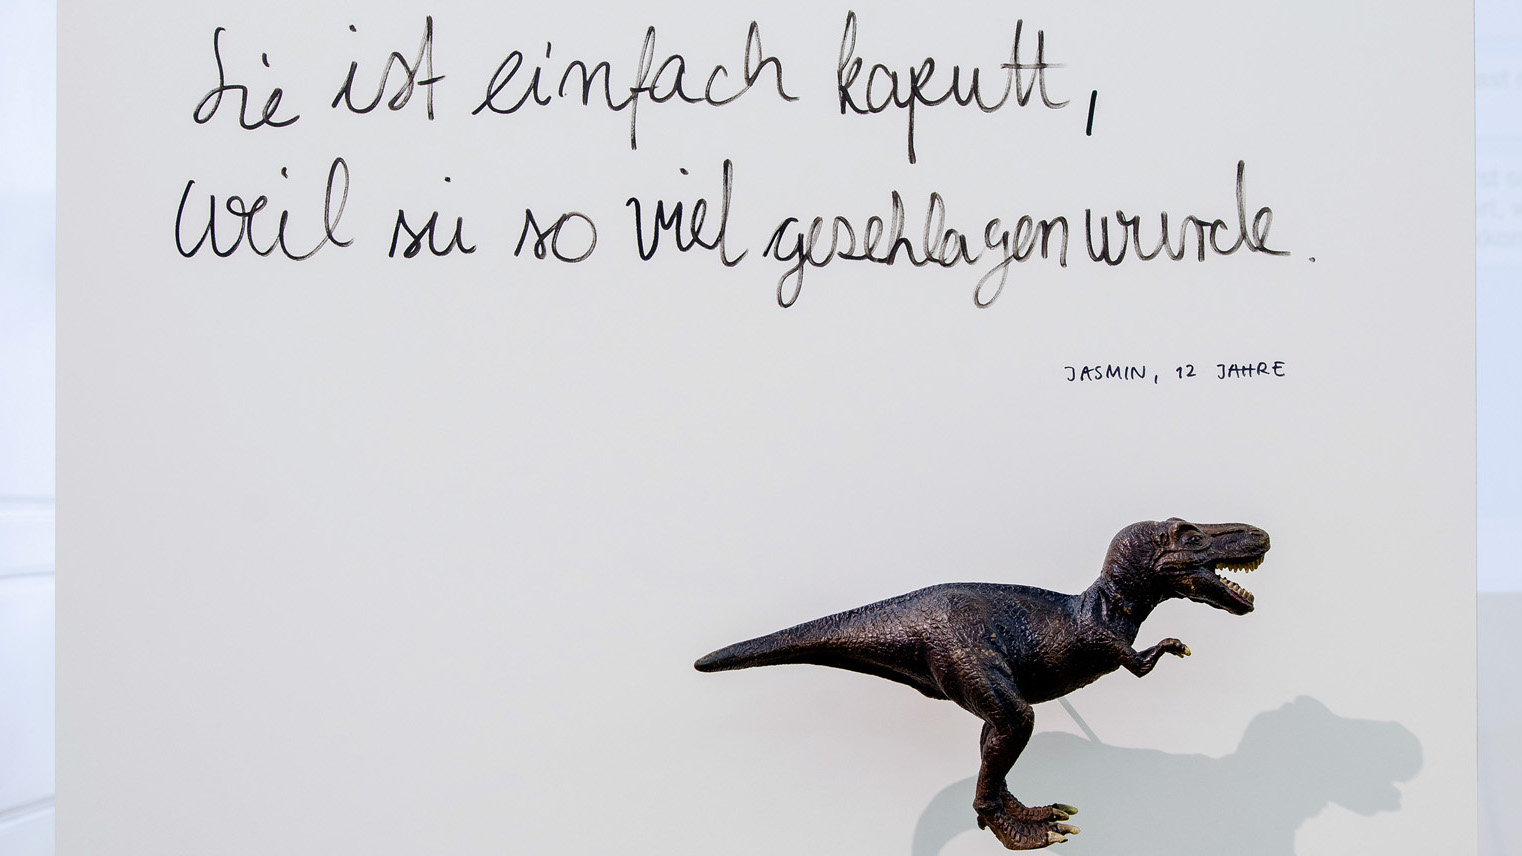 Sie ist einfach kaputt,
weil sie so viel geschlagen wurde.
JASMIN, 12 JAHRE